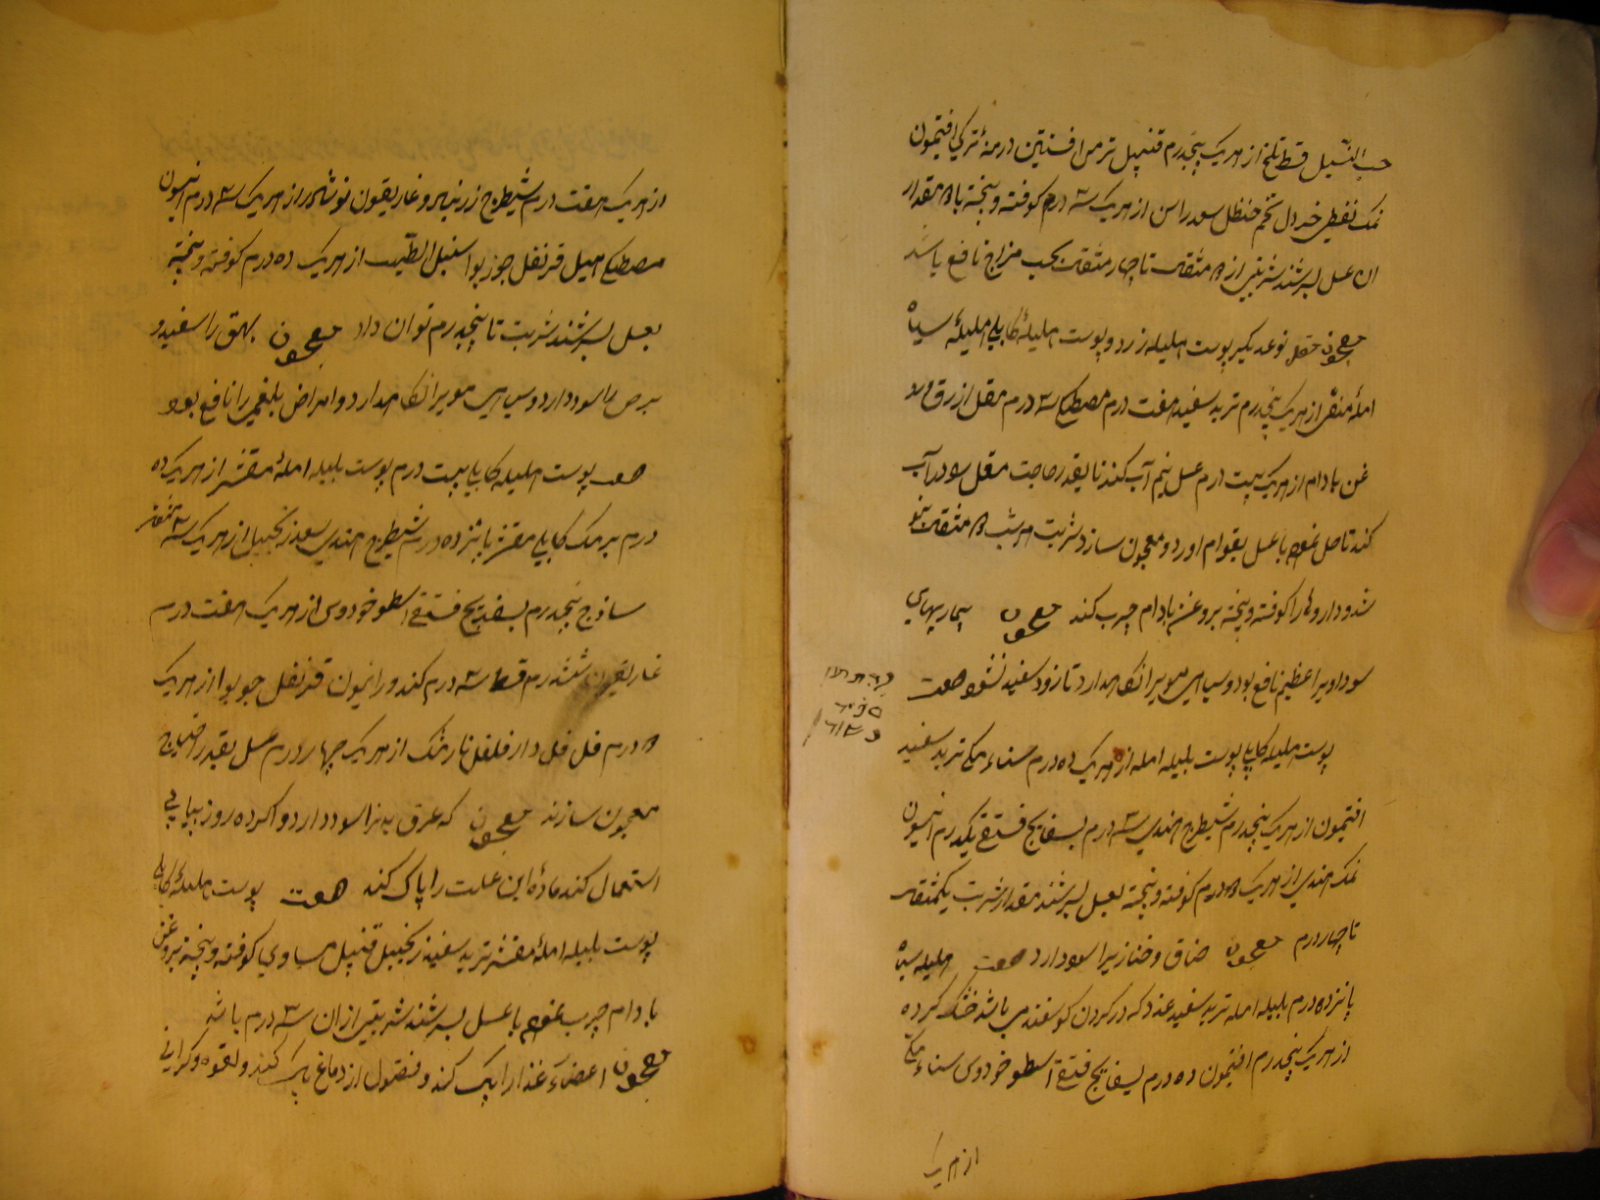 حب النیل قسط تلخ از هریک پنجدرم قنبیل ترمس افسنتین درمنهٔ ترکی افتیمون
نمک نفطی خردل تخم حنظل سعد راسن از هریک سه درم کوفته و بیخته با مقدار
ان عسل بسرشند شربتی از مثقال تا چهار مثقال بحسب مزاج نافع باشد
معجون مقل نوعدیگر پوست هلیله زرد و پوست هلیلهٔ کابلی هلیلهٔ سیاه
املهٔ منقی از هریک پنجدرم تربد سفید هفت درم مصطکی سه درم مقل ازرق
غن بادام از هریک بیست درم عسل نیم آب کند تا بقدر حاجت مقل در آب
کند تا حل شود با عسل بقوام اورد و معجون سازد شربت هرشب مثقال
شد و داروها را کوفته و بیخته بروغن بادام چرب کند معجون بیماریهای
سوداویرا عظیم نافع بود و سیاهی مویرا نگاهدارد تا زود سفید نشود صفت
پوست هلیله کابلی پوست بلیله امله از هریک ده درم سناء مکی تربد سفید
افتیمون از هریک پنجدرم شیطرج هندی سه درم بسفایج فستقی یکدرم انیسون
نمک هندی از هریک درم کوفته و بیخته بعسل بسرشند مقدار شربت یکمثقال
تا چهاردرم معجون خناق و خنازیرا سود دارد صفت هلیله سیاه
پانزده درم بلیله امله تربد سفید غدد که در گردن گوسفند می باشد خشک کرده
از هریک پنجدرم افتیمون ده درم بسفایج فستقی اسطوخودوس سناء مکی
از هریک
از هریک هفت درم شیطرج زرنباد و غاریقون نوشادر از هریک سه درم انیسون
مصطکی هیل قرنفل جوزبوا سنبل الطیب از هریک ده درم کوفته و بیخته
بعسل بسرشند شربت تا پنجدرم توان داد معجون بهق را سفید و
برص را سود دارد و سیاهی مویرا نگاهدارد و امراض بلغمی را نافع بود
صفت پوست هلیله کابلی بیست درم پوست بلیله املهٔ مقشر از هریک ده
درم برنک کابلی مقشر پانزده درم شیطرج هندی سعد زنجبیل از هریک سه مثقال
ساذج پنجدرم بسفایج فستقی اسطوخودوس از هریک هفت درم
غاریقون ششدرم قسط سه درم کندر انیسون قرنفل جوزبوا از هریک
درم فلفل دارفلفل نارمشک از هریک چهار درم عسل بقدر احتیاج
معجون سازند معجون که عرق را سود دارد و اگر ده روز پیاپی
استعمال کند مادهٔ این علت را پاک کند صفت پوست هلیلهٔ کابلی
پوست بلیله املهٔ مقشر تربد سفید زنجبیل قنبیل مساوی کوفته و بیخته بروغن
بادام چرب نموده با عسل بسرشند شربتی از ان سه درم باشد
معجون اعضاء غذا را پاک کند و فضول از دماغ پاک کند و لقوه و گرانی